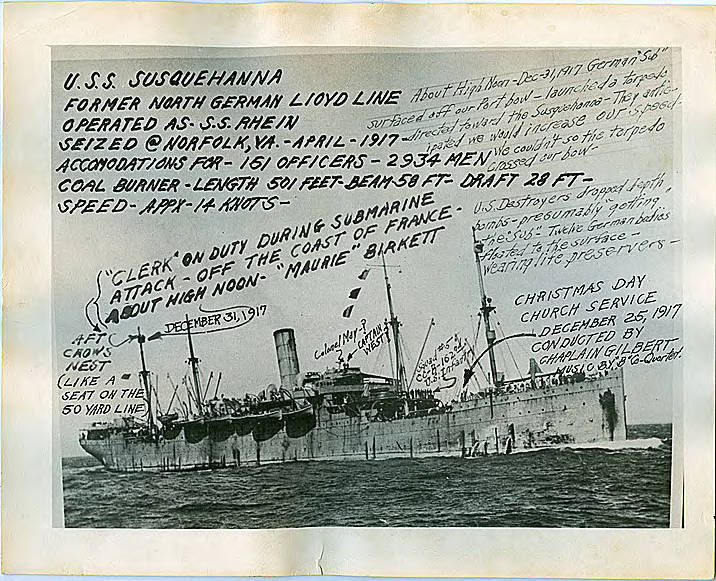 U.S.S. SUSQUEHANNA
FORMER NORTH GERMAN LIOYD LINE
OPERATED AS- S.S. RHEIN
SEIZED @ NORFOLK, VA. - APRIL - 1917 -
ACCOMODATIONS FOR - 161 OFFICERS - 2934 MEN
COAL BURNER - LENGTH 501 FEET - BEAM - 58 FT - DRAFT 28 FT -
SPEED - APPX - 14 KNOTS -
About High Noon - Dec - 31, 1917 German "Sub"
surfaced off our Port bow - launched a torpedo,
directed toward the Susquehanna - They antic-
ipated we would increase our speed.
We couldn't so the torpedo
crossed our bow -
U.S. Destroyers dropped depth
bombs - presumably getting
the "Sub" Twelve German bodies
floated to the surface -
wearing life preservers -
"CLERK" ON DUTY DURING SUBMARINE
ATTACK - OFF THE COAST OF FRANCE -
ABOUT HIGH NOON - "MAURIE" BIRKETT
DECEMBER 31, 1917
AFT
CROWS
NEST
(LIKE A
SEAT ON THE
50 YARD LINE)
Colonel May - P
CAPTAIN
WEST
Squad #5 &
162
U.S. Infantry
CHRISTMAS DAY
CHURCH SERVICE
DECEMBER 25, 1917
CONDUCTED BY
CHAPLAIN GILBERT
MUSIC BY "B" Co-Quartet.